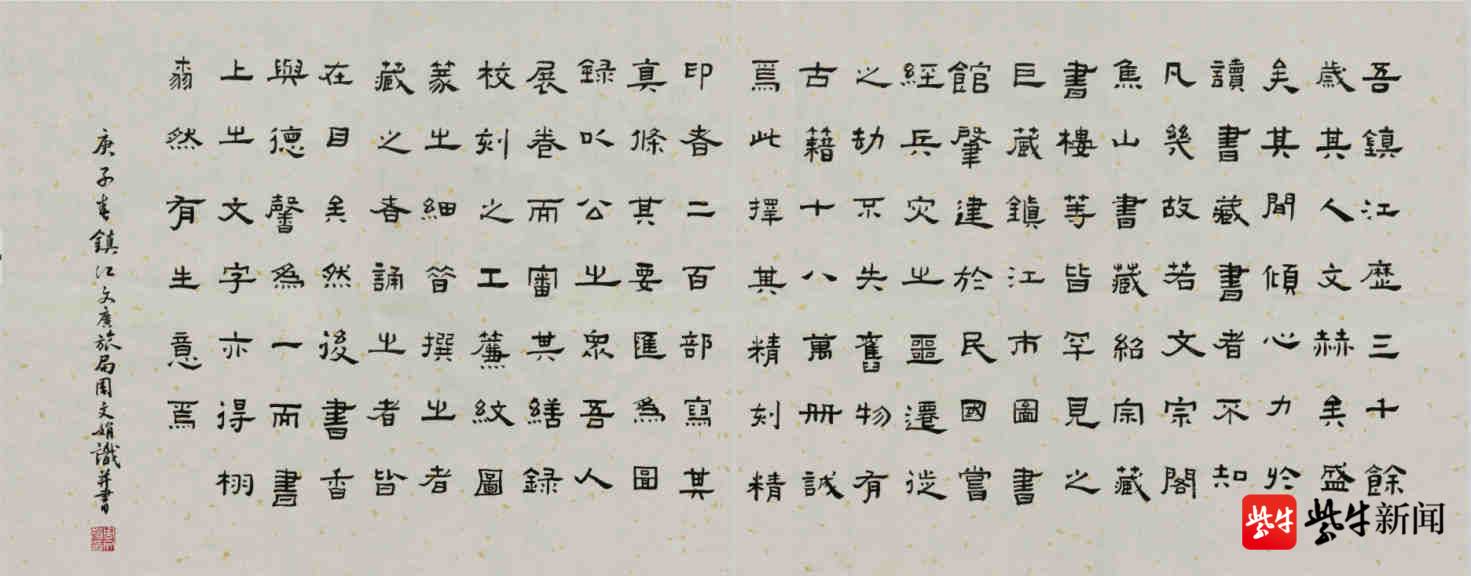 吾鎮江歷三千餘
歲其人文赫矣盛
矣其間傾心力於
讀書藏書者不知
凡幾故若文宗閣
焦山書藏紹宗藏
書樓等皆罕見之
巨藏鎮江市圖書
館肇建於民國嘗
經兵灾之噩遷徙
之劫不失舊物有
古籍十八萬冊誠
焉此擇其精刻精
印者二百部寫其
真條其要匯為圖
録以公之眾吾人
展卷而審其繕録
校刻之工簾紋圖
篆之細昔撰之者
藏之者誦之者皆
在目矣然後書香
與德馨為一而書
上之文字亦得栩
栩然有生意焉
庚子春鎮江文廣旅局周文娟識并書
紫牛
紫牛新闻